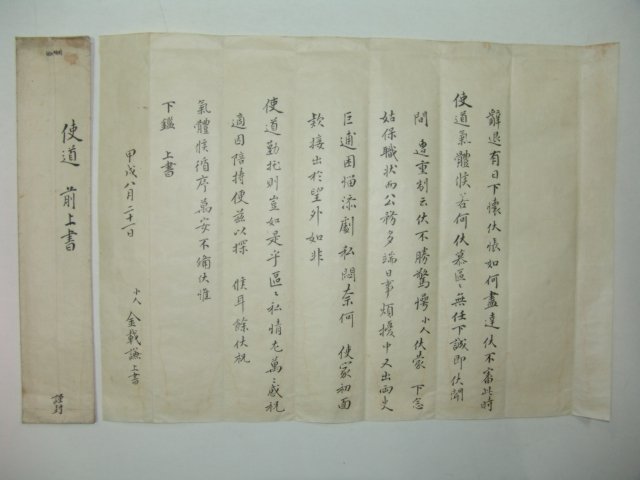 辭退有日下懷伏悵如何盡達伏不審此時
使道氣體候若何伏慕區〻無任下誠卽伏聞
間 遭重制云伏不勝驚愕小人伏蒙 下念
姑保職狀而公務多端日事煩擾中又出兩吏
巨逋因惱添劇私悶奈何 使家初面
款接出於望外如非
使道勤托則豈如是乎區〻私情尤萬〻感祝
適因陪持便玆以探 候耳餘伏祝
氣體候循序萬安不備伏惟
下鑑 上書
甲戌八月二十一日
小人 金載謙 上書
使道 前上書
謹封